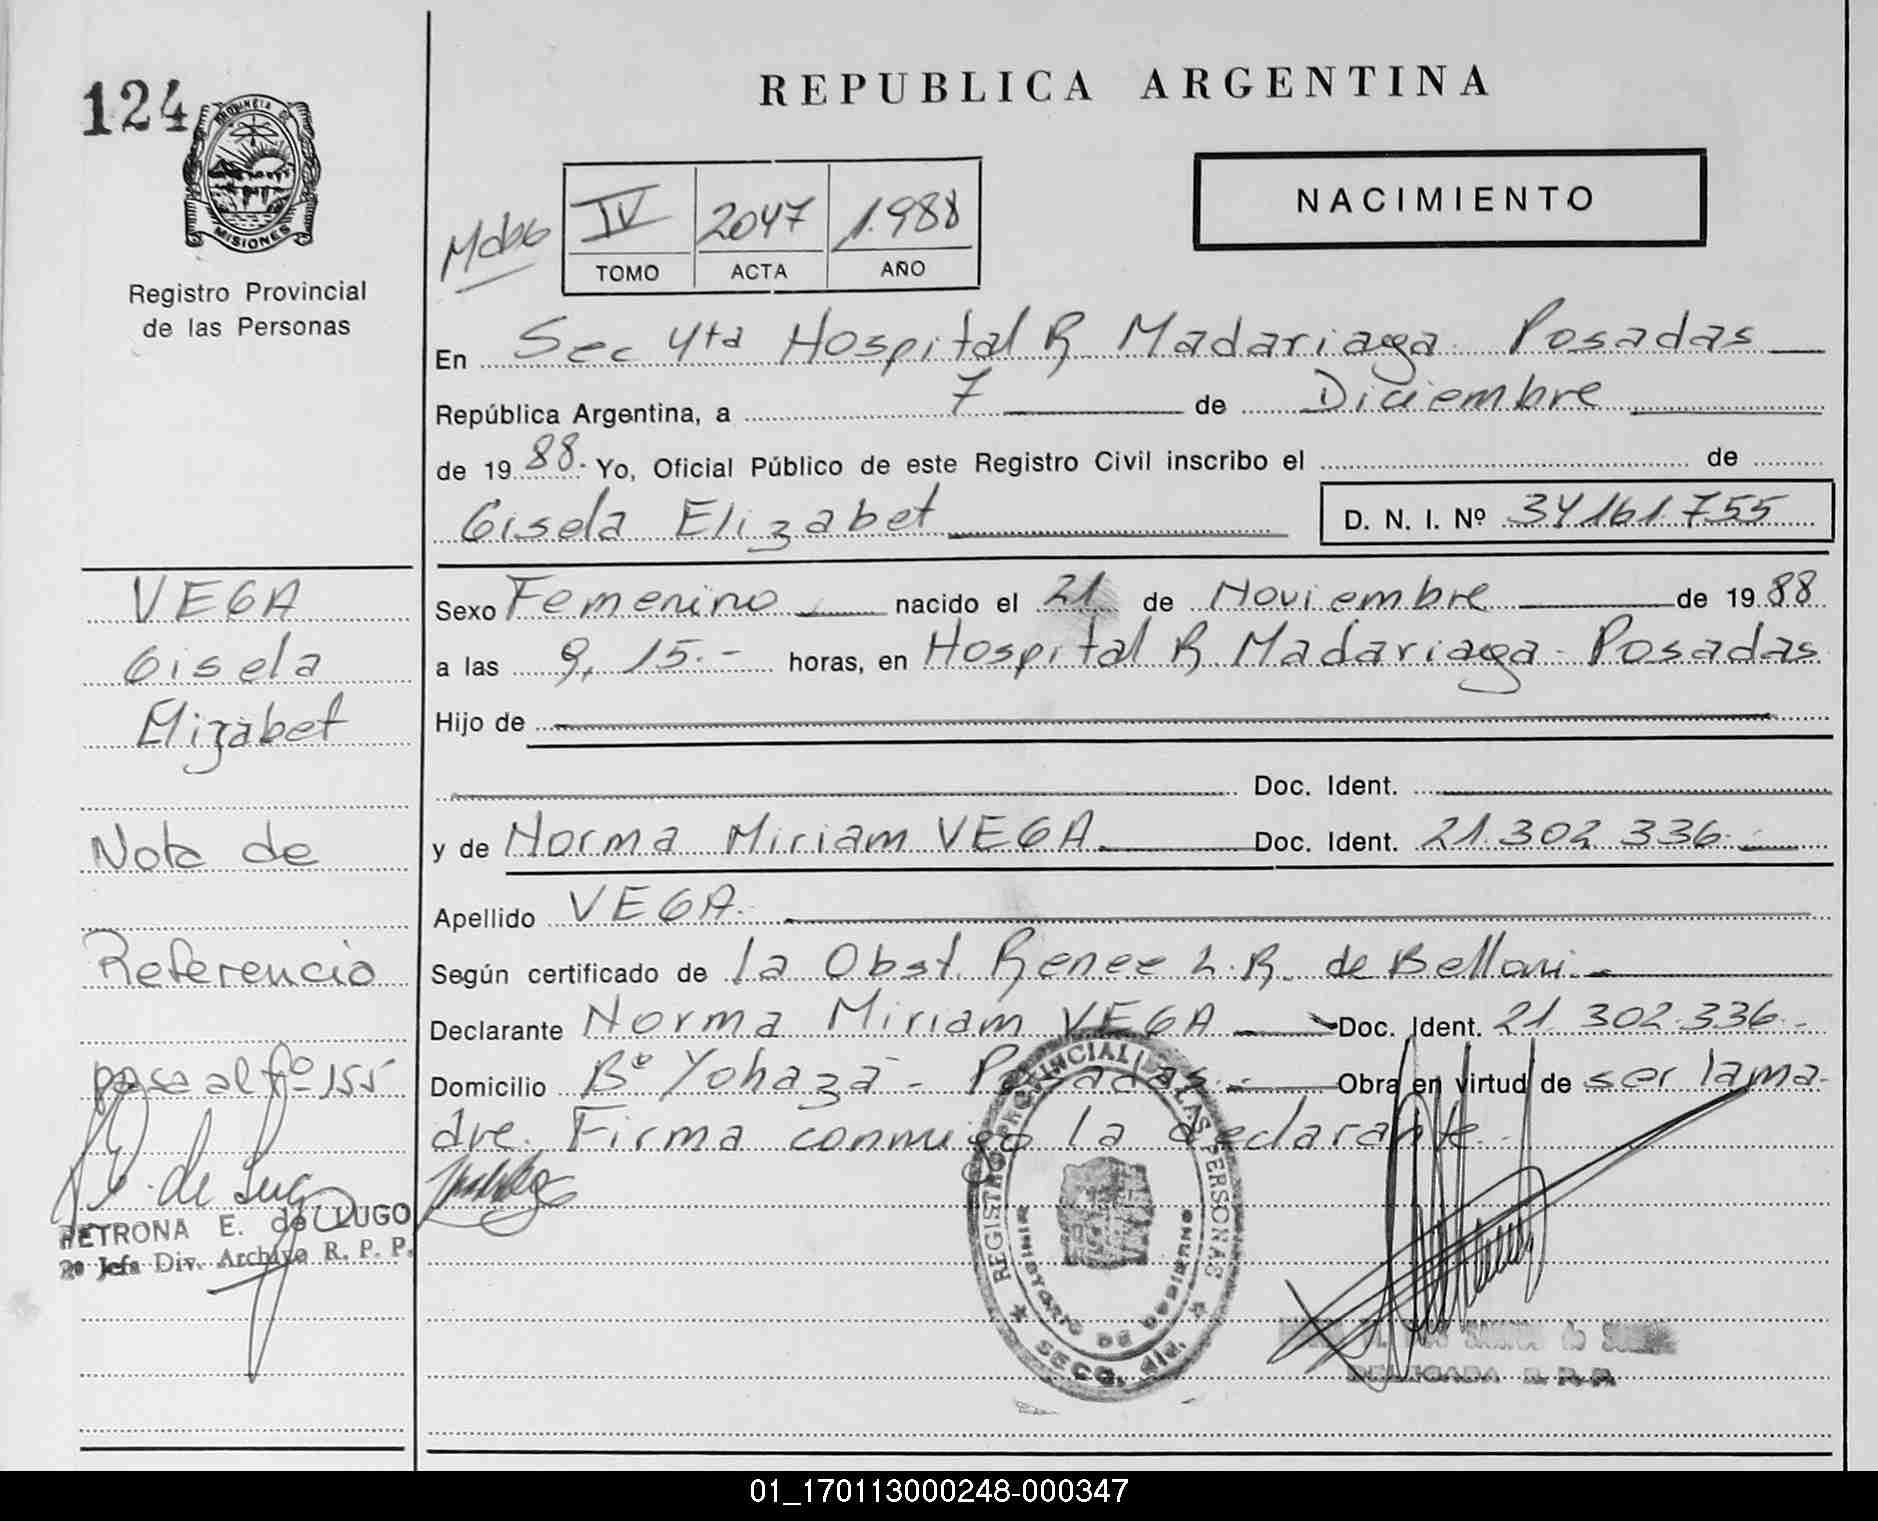 124
PROVINCIA DE
MISIONES
Registro Provincial
de las Personas
REPUBLICA ARGENTINA
NACIMIENTO
IV 2047 1.988
TOMO ACTA AÑO
En Sec 4ta Hospital R Madariaga Posadas
República Argentina, a 7 de Diciembre
de 19 88. Yo, Oficial Público de este Registro Civil inscribo el de
Gisela Elizabet D. N. I. Nº 34161.755
VEGA
Gisela
Elizabet
Nota de
Referencia
pase al fº 155
PETRONA E. de LUGO
2º Jefa Div. Archivo R. P. P.
Sexo Femenino nacido el 21 de Noviembre de 19 88
a las 9, 15.- horas, en Hospital R. Madariaga - Posadas
Hijo de
Doc. Ident.
y de Norma Miriam VEGA Doc. Ident. 21.302.336.
Apellido VEGA.
Según certificado de la Obst. Renee L. R. de Belloni.-
Declarante Norma Miriam VEGA Doc. Ident. 21.302.336.-
Domicilio Bº Yohazá - Posadas.- Obra en virtud de ser la ma-
dre. Firma conmigo la declarante.-
REGISTRO PROVINCIAL DE LAS PERSONAS
MINISTERIO DE GOBIERNO
SECC. 4ta.
DELEGADA R. P. P.
01_170113000248-000347